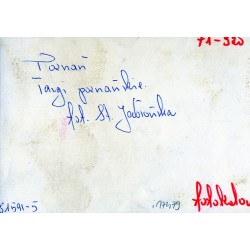 71-320
Poznań
Targi poznańskie.
fot. St. Jabłońska
51591-5
fotokolor